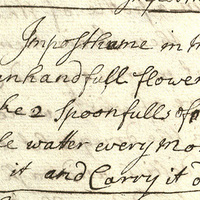 Imposthame in
ankandfull flower
ke 2 Spoonfulls of
le water every Mo
it and Carry it o